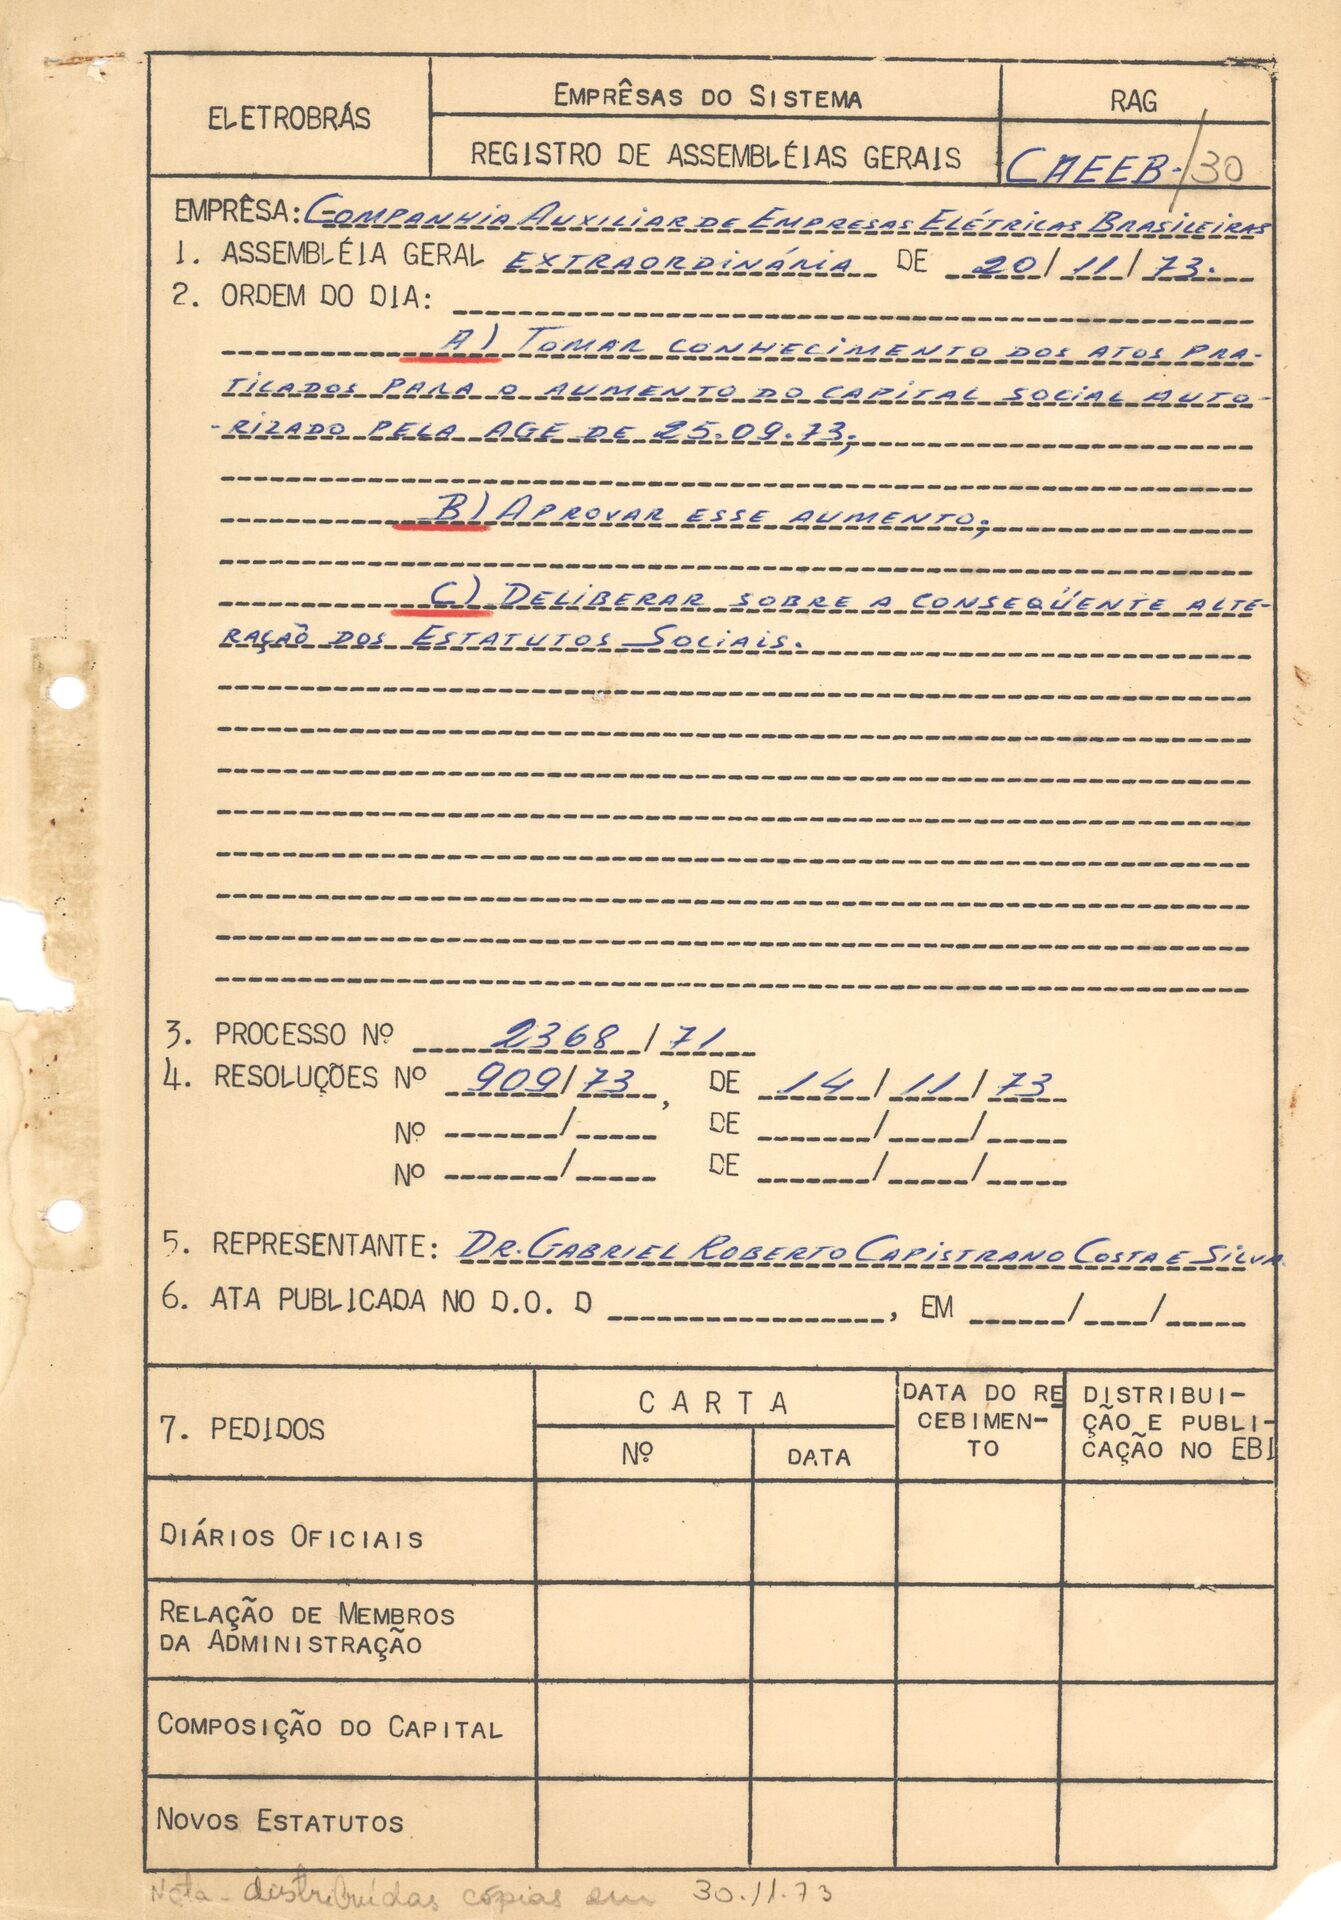 ELETROBRÁS
EMPRÊSAS DO SISTEMA
RAG
REGISTRO DE ASSEMBLÉIAS GERAIS
CAEEB-/30
EMPRÊSA: COMPANHIA AUXILIAR DE EMPRESAS ELÉTRICAS BRASILEIRAS
1. ASSEMBLÉIA GERAL EXTRAORDINÁRIA DE 20/11/73.
2. ORDEM DO DIA:
A) TOMAR CONHECIMENTO DOS ATOS PRA-
TICADOS PARA O AUMENTO DO CAPITAL SOCIAL AUTO-
-RIZADO PELA AGE DE 25.09.73;
B) APROVAR ESSE AUMENTO;
C) DELIBERAR SOBRE A CONSEQÜENTE ALTE-
RAÇÃO DOS ESTATUTOS SOCIAIS.
3. PROCESSO Nº 2368/71
4. RESOLUÇÕES Nº 909/73, DE 14/11/73
Nº / DE / /
Nº / DE / /
5. REPRESENTANTE: DR. GABRIEL ROBERTO CAPISTRANO COSTA E SILVA.
6. ATA PUBLICADA NO D.O. D , EM / /
7. PEDIDOS
CARTA
Nº
DATA
DATA DO RE
CEBIMEN-
TO
DISTRIBUI-
ÇÃO E PUBLI-
CAÇÃO NO EBI
DIÁRIOS OFICIAIS
RELAÇÃO DE MEMBROS
DA ADMINISTRAÇÃO
COMPOSIÇÃO DO CAPITAL
NOVOS ESTATUTOS
Nota - distribuídas cópias em 30.11.73